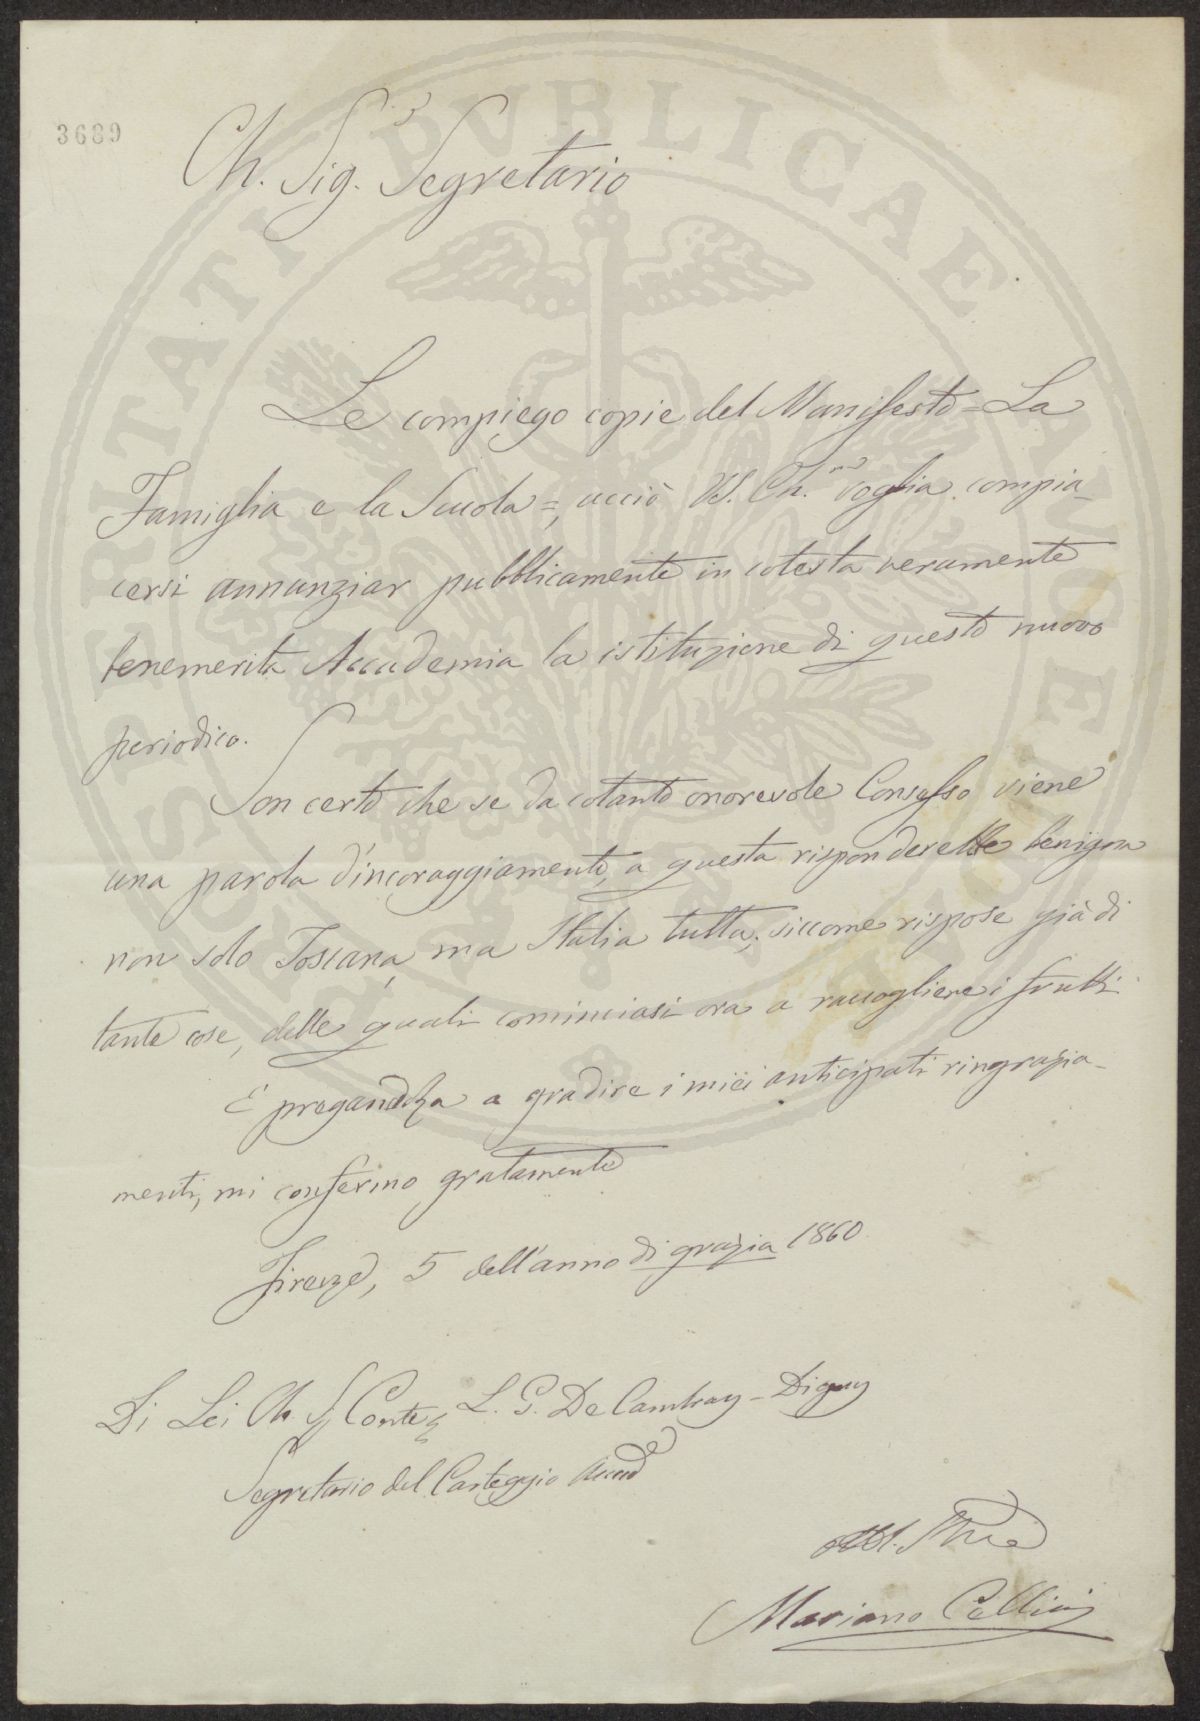 3689
Ch. Sig.r Segretario
Le compiego copie del Manifesto = La
Famiglia e la Scuola =, acciò VS. Ch.ma voglia compia-
cersi annunziar pubblicamente in cotesta veramente
benemerita Accademia la istituzione di questo nuovo
periodico.
Son certo che se da cotanto onorevole Consesso viene
una parola d'incoraggiamento, a questa risponderebbe benigna
non solo Toscana, ma Italia tutta, siccome rispose già di
tante cose, delle quali cominciasi ora a raccogliere i frutti.
E pregandola a gradire i miei anticipati ringrazia-
menti, mi confermo gratamente
Firenze, 5 dell'anno di grazia 1860
Di Lei Ch. Sig. Conte L. G. De Cambray-Digny
Segretario del Carteggio Accad.
Mariano Cellini
PVBLICAE